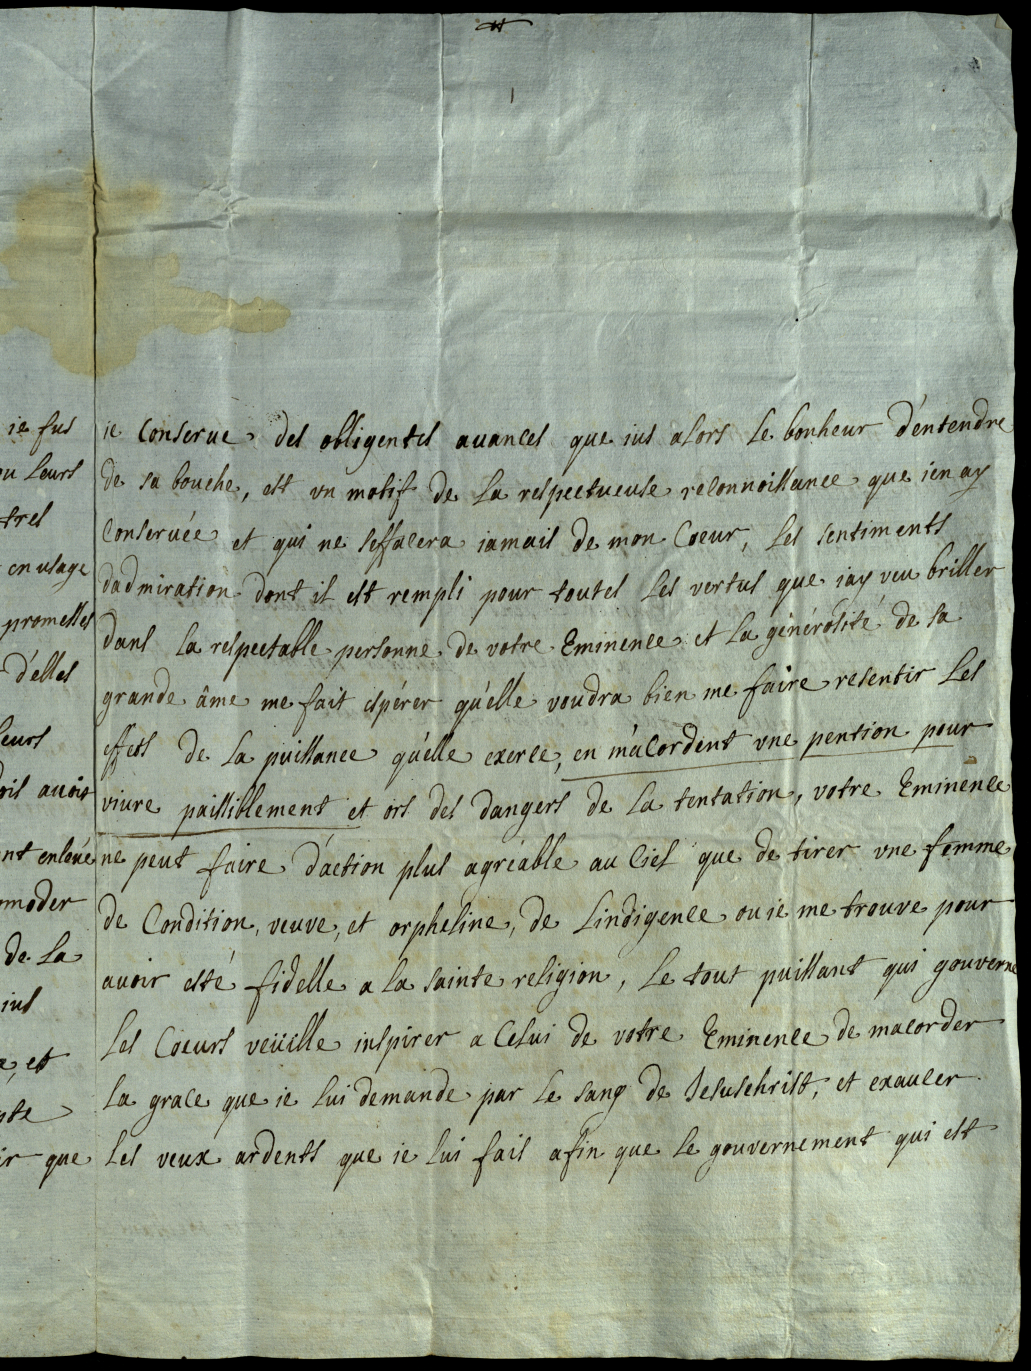 ie fus
ou leurs
tres
en usage
promesses
d'elles
leurs
avoir
ent enlevée
mmoder
de la
ius
et
pte
ir que
ie conserve des obligentes avances que ius alors le bonheur d'entendre
de sa bouche, est vn motif de la respectueuse reconnoissance que ien ay
conservée et qui ne s'effacera iamais de mon coeur, les sentiments
dadmiration dont il est rempli pour toutes les vertus que iay veu briller
dans la respectable personne de votre Eminence et la générosité de sa
grande âme me fait espérer qu'elle voudra bien me faire resentir les
effets de la puissance qu'elle exerce, en m'acordent vne pention pour
vivre paissiblement et ors des dangers de la tentation, votre Eminence
ne peut faire d'action plus agréable au ciel que de tirer vne femme
de condition, veuve, et orpheline, de lindigence ou ie me trouve pour
avoir esté fidelle a la sainte religion, le tout puissant qui gouverne
les coeurs veüille inspirer a celui de votre Eminence de macorder
la grace que ie lui demande par le sang de Jesuschrist, et exaucer
les veux ardents que ie lui fais afin que le gouvernement qui est